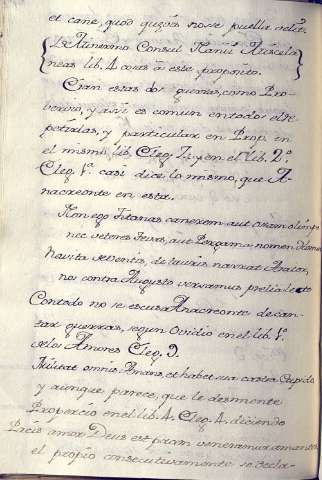 et cane, quod quævis nosse puella velit.
neas lib. 4 cosas à este proposito.
Eran estas dos guerras, como Pro-
verbio, y assi es comun en todos el re-
petirlas, y particular en Prop. en
el mismo lib. Eleg. y en el lib. 2º
Eleg. 1ª casi dice lo mismo, que A-
nacreonte en esta.
Non ego Titanas canerem aut Ossam
nec veteres Tebas, aut Pergama nomen
Navita de ventis, de tauris narrat Arator,
nos contra Augusto versamus prelia lecto
Contodo no se escusa Anacreonte de can-
tar guerras, segun Ovidio en el lib. 1º
de los Amores Eleg. 9.
Militat omnis Amans, et habet sua castra Cupido
y aunque parece, que le desmente
Propercio en el lib. 4. Eleg. 4. diciendo
Pacis amor Deus est pacem veneramur amantes
el propio consecutivamente se decla-